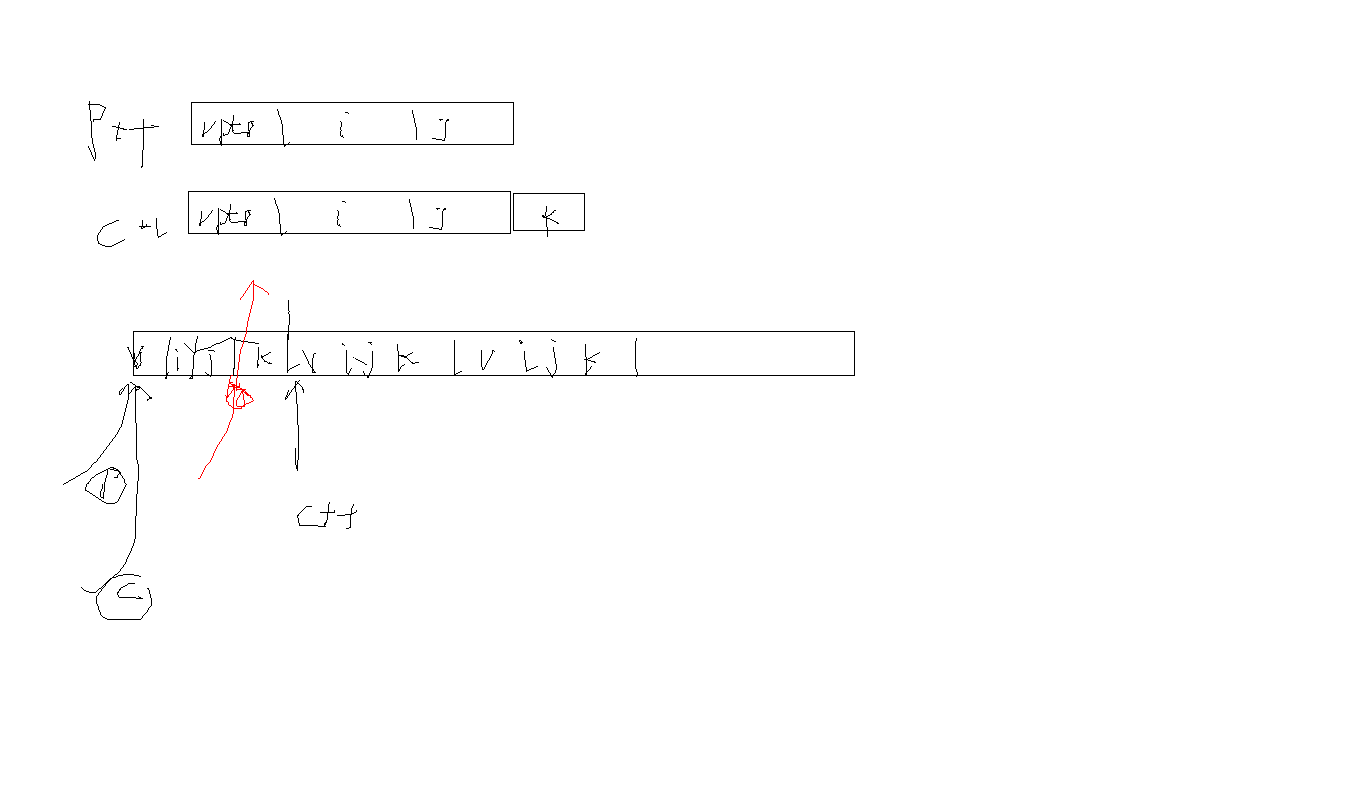 P++ vptr | i | j
C++ vptr | i | j k
v | i | j | k | v i j k | v i j k |
P
C++
C